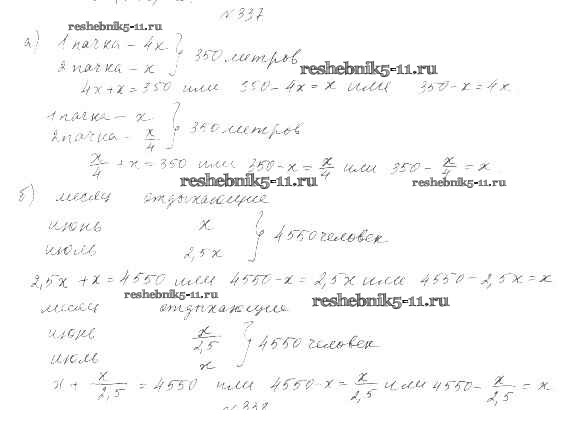 №337
reshebnik5-11.ru
а) 1 пачка – 4x
2 пачка – x } 350 метров
reshebnik5-11.ru
4x + x = 350 или 350 – 4x = x или 350 – x = 4x
1 пачка – x
2 пачка – x/4 } 350 метров
x/4 + x = 350 или 350 – x = x/4 или 350 – x/4 = x
reshebnik5-11.ru reshebnik5-11.ru
б) месяц отдыхающие
июнь x
июль 2,5x } 4550 человек
2,5x + x = 4550 или 4550 – x = 2,5x или 4550 – 2,5x = x
reshebnik5-11.ru reshebnik5-11.ru
месяц отдыхающие
июнь x/2,5
июль x } 4550 человек
x + x/2,5 = 4550 или 4550 – x = x/2,5 или 4550 – x/2,5 = x
№338